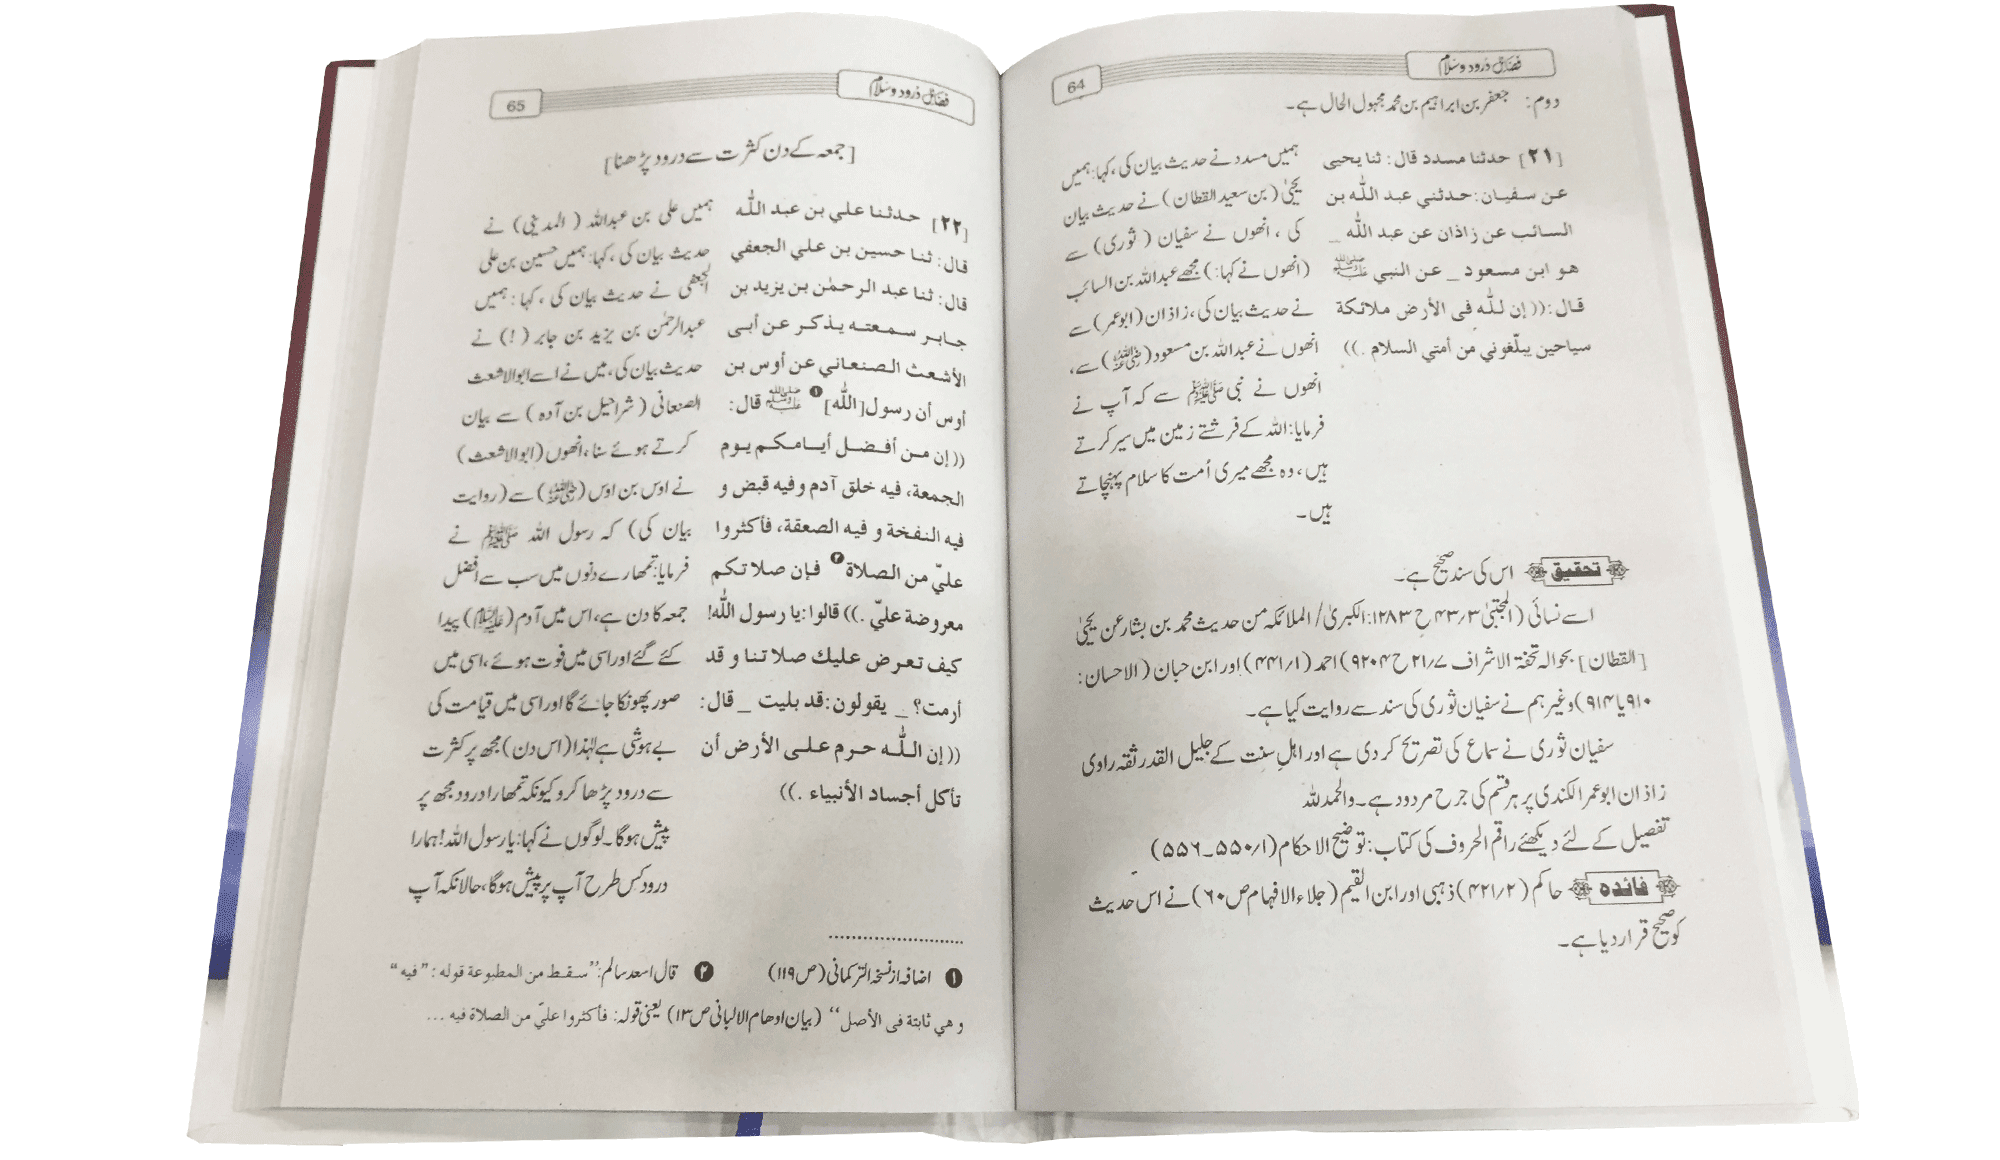 فضائل درود و سلام
64
دوم: جعفر بن ابراہیم بن محمد مجہول الحال ہے۔
[٢١] حدثنا مسدد قال: ثنا يحيى
عن سفيان: حدثني عبد الله بن
السائب عن زاذان عن عبد الله _
هو ابن مسعود _ عن النبي ﷺ
قال: ((إن لله في الأرض ملائكة
سياحين يبلّغوني من أمتي السلام .))
ہمیں مسدد نے حدیث بیان کی، کہا: ہمیں
یحییٰ (بن سعید القطان) نے حدیث بیان
کی، انھوں نے سفیان (ثوری) سے
(انھوں نے کہا:) مجھے عبداللہ بن السائب
نے حدیث بیان کی، زاذان (ابوعمر) سے
انھوں نے عبداللہ بن مسعود (رضی اللہ عنہ) سے،
انھوں نے نبی ﷺ سے کہ آپ نے
فرمایا: اللہ کے فرشتے زمین میں سیر کرتے
ہیں، وہ مجھے میری اُمت کا سلام پہنچاتے
ہیں۔
تحقیق اس کی سند صحیح ہے۔
اسے نسائی (المجتبیٰ ۳؍۴۳ ح ۱۲۸۳: الکبریٰ/ الملائکہ من حدیث محمد بن بشار عن یحییٰ
[القطان] بحوالہ تحفۃ الاشراف ۷؍۲۱ ح ۹۲۰۴) احمد (۱؍۴۴۱) اور ابن حبان (الاحسان:
۹۱۰ یا ۹۱۴) وغیرہم نے سفیان ثوری کی سند سے روایت کیا ہے۔
سفیان ثوری نے سماع کی تصریح کر دی ہے اور اہلِ سنت کے جلیل القدر ثقہ راوی
زاذان ابوعمر الکندی پر ہر قسم کی جرح مردود ہے۔ والحمدللہ
تفصیل کے لئے دیکھئے راقم الحروف کی کتاب: توضیح الاحکام (۱؍۵۵۰۔۵۵۶)
فائدہ حاکم (۲؍۴۲۱) ذہبی اور ابن القیم (جلاء الافہام ص ۶۰) نے اس حدیث
کو صحیح قرار دیا ہے۔
فضائل درود و سلام
65
[جمعہ کے دن کثرت سے درود پڑھنا]
[٢٢] حدثنا علي بن عبد الله
قال: ثنا حسين بن علي الجعفي
قال: ثنا عبد الرحمٰن بن يزيد بن
جابر سمعته يذكر عن أبى
الأشعث الصنعاني عن أوس بن
أوس أن رسول [الله] ❶ ﷺ قال:
((إن من أفضل أيامكم يوم
الجمعة، فيه خلق آدم وفيه قبض و
فيه النفخة و فيه الصعقة، فأكثروا
عليّ من الصلاة ❷ فإن صلاتكم
معروضة عليّ .)) قالوا: يا رسول الله!
كيف تعرض عليك صلاتنا و قد
أرمت؟ _ يقولون: قد بليت _ قال:
((إن الله حرم على الأرض أن
تأكل أجساد الأنبياء .))
ہمیں علی بن عبداللہ (المدینی) نے
حدیث بیان کی، کہا: ہمیں حسین بن علی
الجعفی نے حدیث بیان کی، کہا: ہمیں
عبدالرحمٰن بن یزید بن جابر (!) نے
حدیث بیان کی، میں نے اسے ابوالاشعث
الصنعانی (شراحیل بن آدہ) سے بیان
کرتے ہوئے سنا، انھوں (ابوالاشعث)
نے اوس بن اوس (رضی اللہ عنہ) سے (روایت
بیان کی) کہ رسول اللہ ﷺ نے
فرمایا: تمھارے دنوں میں سب سے افضل
جمعہ کا دن ہے، اس میں آدم (علیہ السلام) پیدا
کئے گئے اور اسی میں فوت ہوئے، اسی میں
صور پھونکا جائے گا اور اسی میں قیامت کی
بے ہوشی ہے لہٰذا (اس دن) مجھ پر کثرت
سے درود پڑھا کرو کیونکہ تمھارا درود مجھ پر
پیش ہوگا۔ لوگوں نے کہا: یا رسول اللہ! ہمارا
درود کس طرح آپ پر پیش ہوگا، حالانکہ آپ
❶ اضافہ از نسخۃ الترکمانی (ص ۱۱۹) ❷ قال اسعد سالم: ”سقط من المطبوعة قوله: ”فيه“
و هي ثابتة في الأصل“ (بیان اوهام الالبانی ص ۱۳) یعنی قوله: فأكثروا عليّ من الصلاة فيه ...